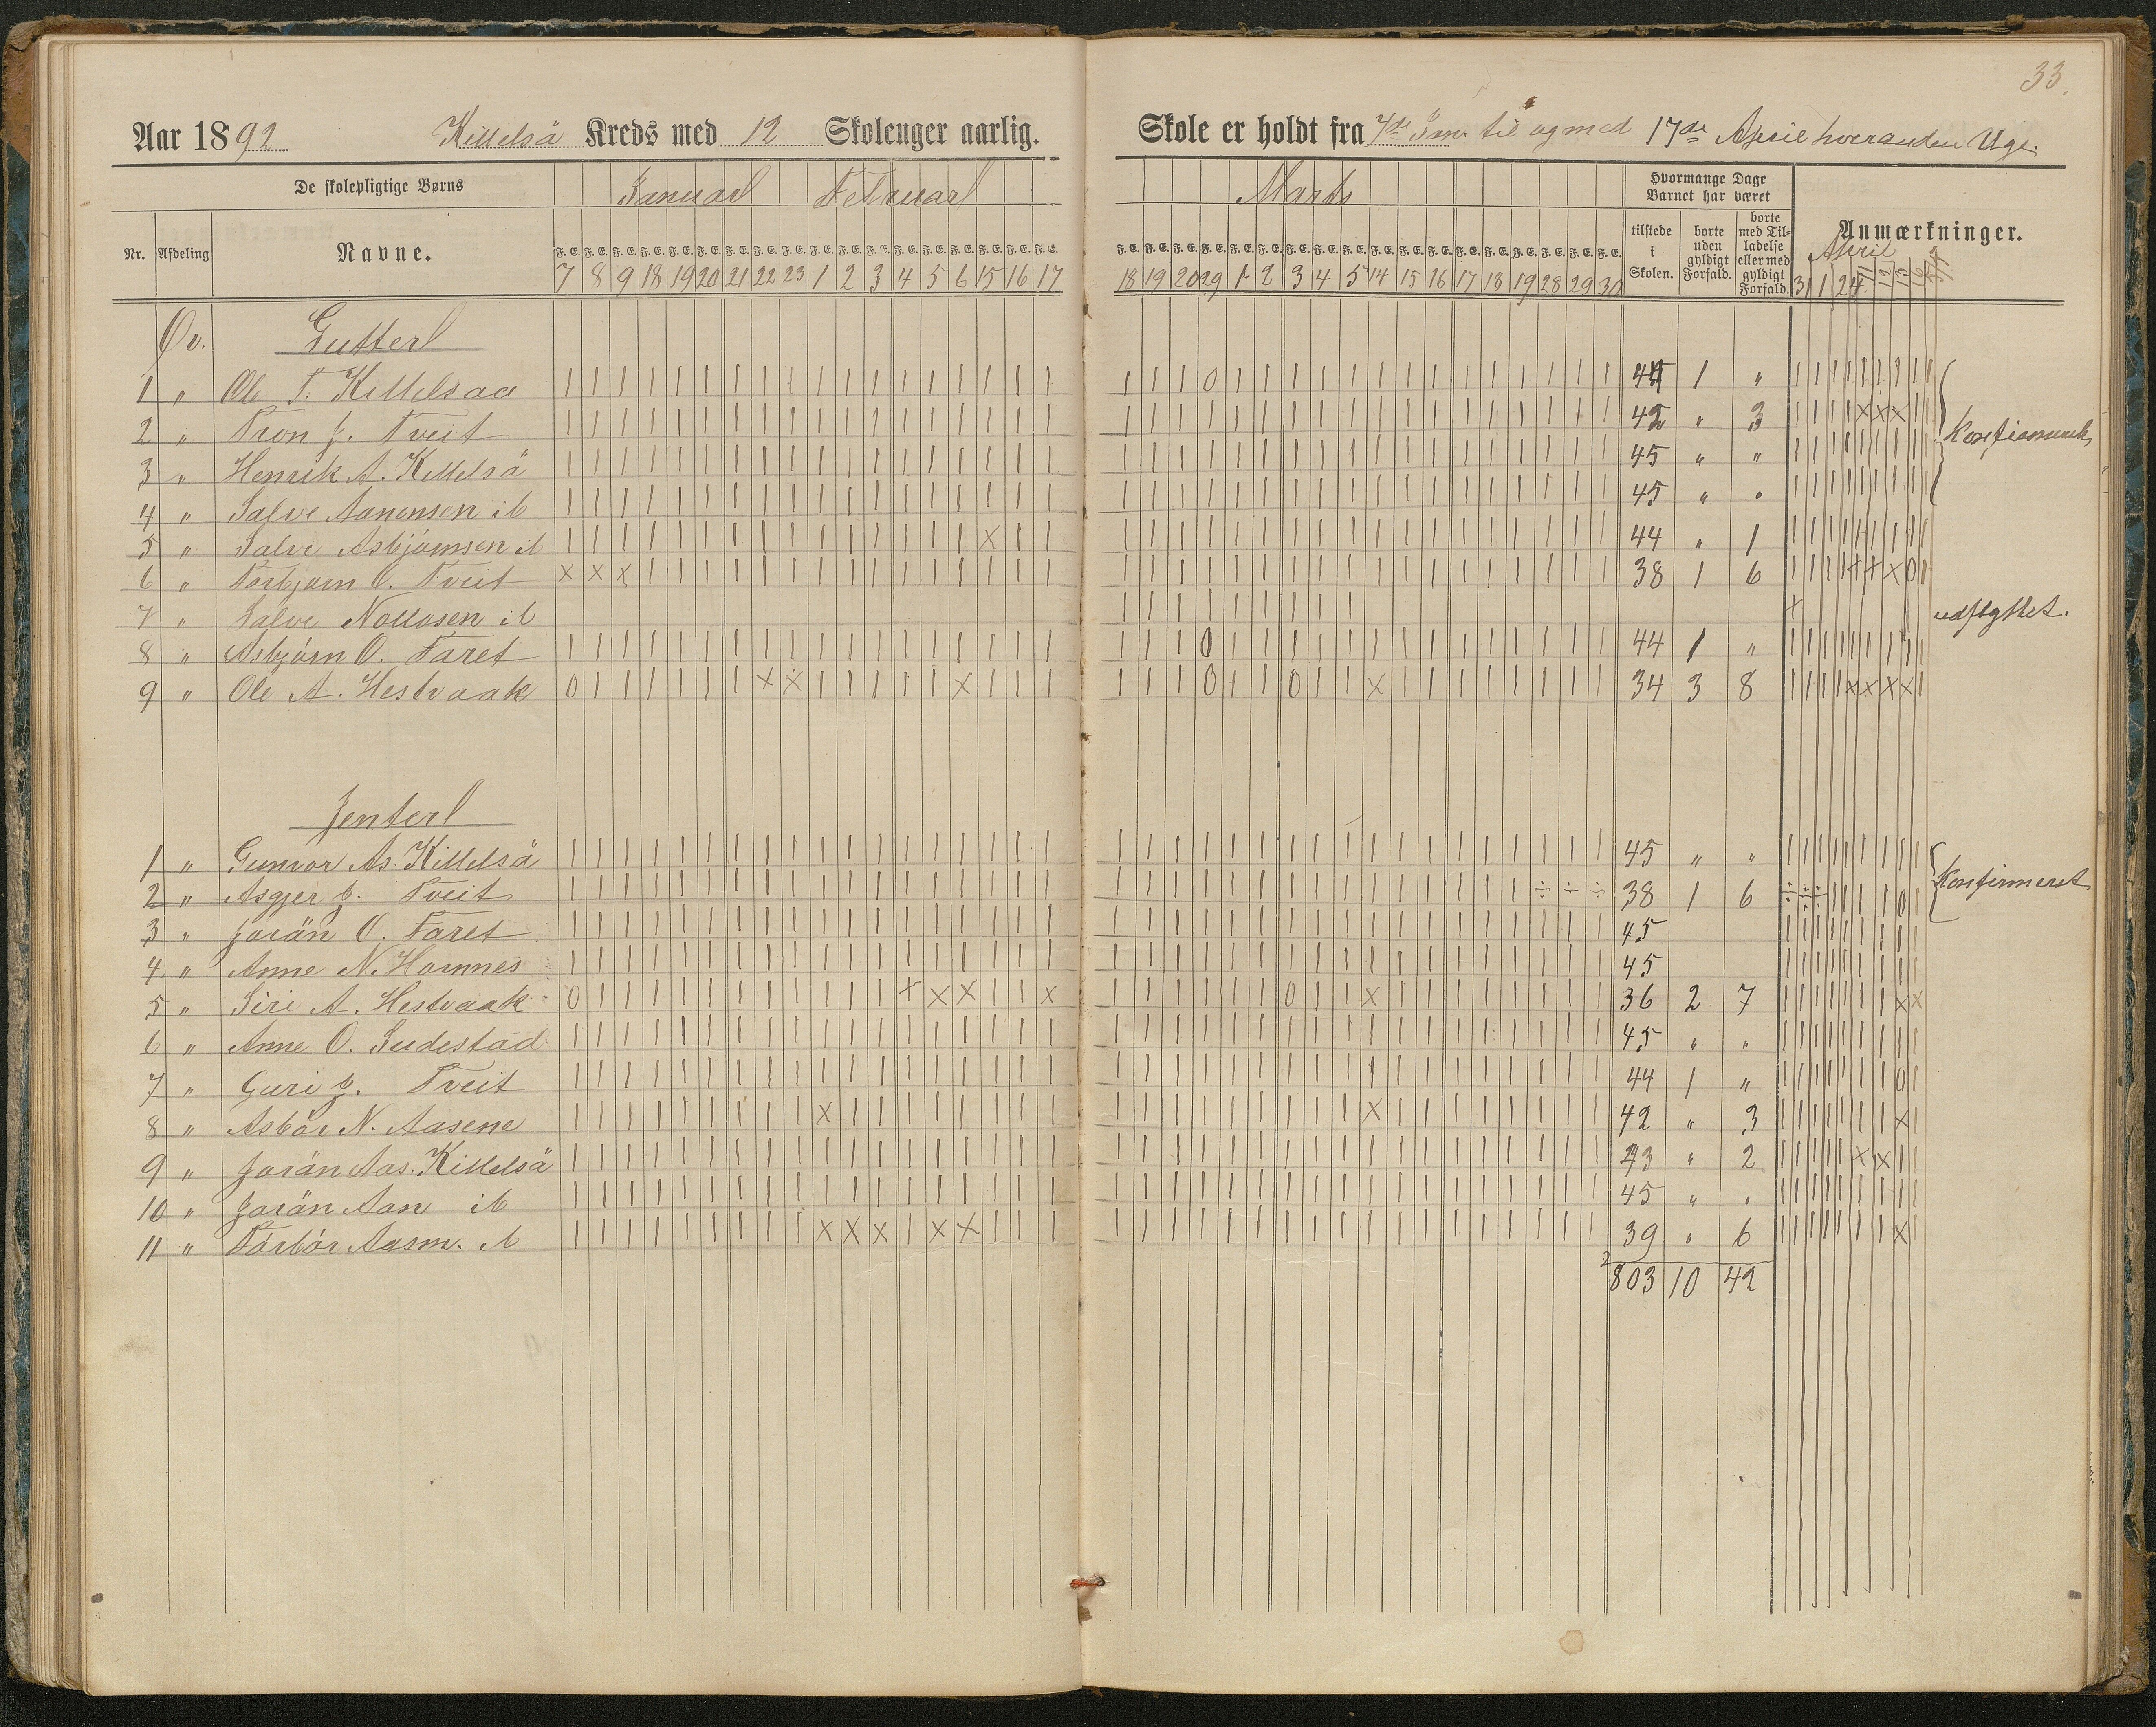 33.
Aar 1892 Killelsä Kreds med 12 Skoleuger aarlig. Skole er holdt fra 7de Jan. til og med 17de April hveranden Uge.
De skolepligtige Børns Januar Februar Marts Hvormange Dage Barnet har været Anmærkninger.
Nr. Afdeling Navne. tilstede i Skolen. borte uden gyldigt Forfald. borte med Tilladelse eller med gyldigt Forfald. April
F. E. F. E. F. E. F. E. F. E. F. E. F. E. F. E. F. E. F. E. F. E. F. E. F. E. F. E. F. E. F. E. F. E. F. E. F. E. F. E. F. E. F. E. F. E. F. E. F. E. F. E. F. E. F. E. F. E. F. E. F. E. F. E. F. E. F. E. F. E. F. E.
7 8 9 18 19 20 21 22 23 1 2 3 4 5 6 15 16 17 18 19 20 29 1 2 3 4 5 14 15 16 17 18 19 28 29 30 31 1 2 4
Øv. Gutter
1 " Ole T. Killelsaa 44 1 "
2 " Tron J. Tveit 42 " 3 Konfirmerede
3 " Henrik A. Killelsä 45 " "
4 " Salve Aanensen ib 45 " "
5 " Salve Asbjørnsen ib 44 " 1
6 " Torbjørn O. Tveit 38 1 6
7 " Salve ib udflyttet.
8 " Asbjørn O. Faret 44 1 "
9 " Ole A. Hestvaak 34 3 8
Jenter
1 " Gunvor As. Killelsä 45 " "
2 " Asgjer J. Tveit 38 1 6 Konfirmeret
3 " Jorän O. Faret 45
4 " Anne N. Homnes 45
5 " Siri A. Hestvaak 36 2 7
6 " Anne O. Sudestad 45 " "
7 " Guri J. Tveit 44 1 "
8 " Asbör N. Aasene 42 " 3
9 " Jorän Aas. Killelsä 43 " 2
10 " Jorän Aan ib 45 " "
11 " Törbör Aasm. ib 39 " 6
803 10 42